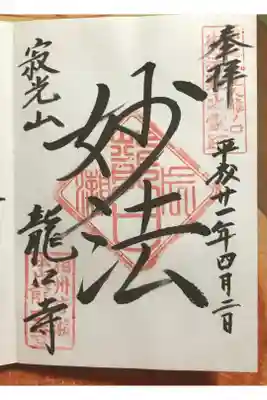 奉拝
平成廿一年四月二日
妙法
寂光山
龍口寺